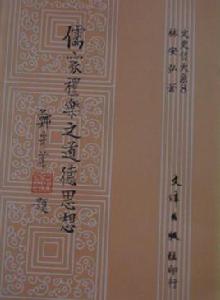 文史哲大系8
林安弘著
儒家禮樂之道德思想
文津出版社印行